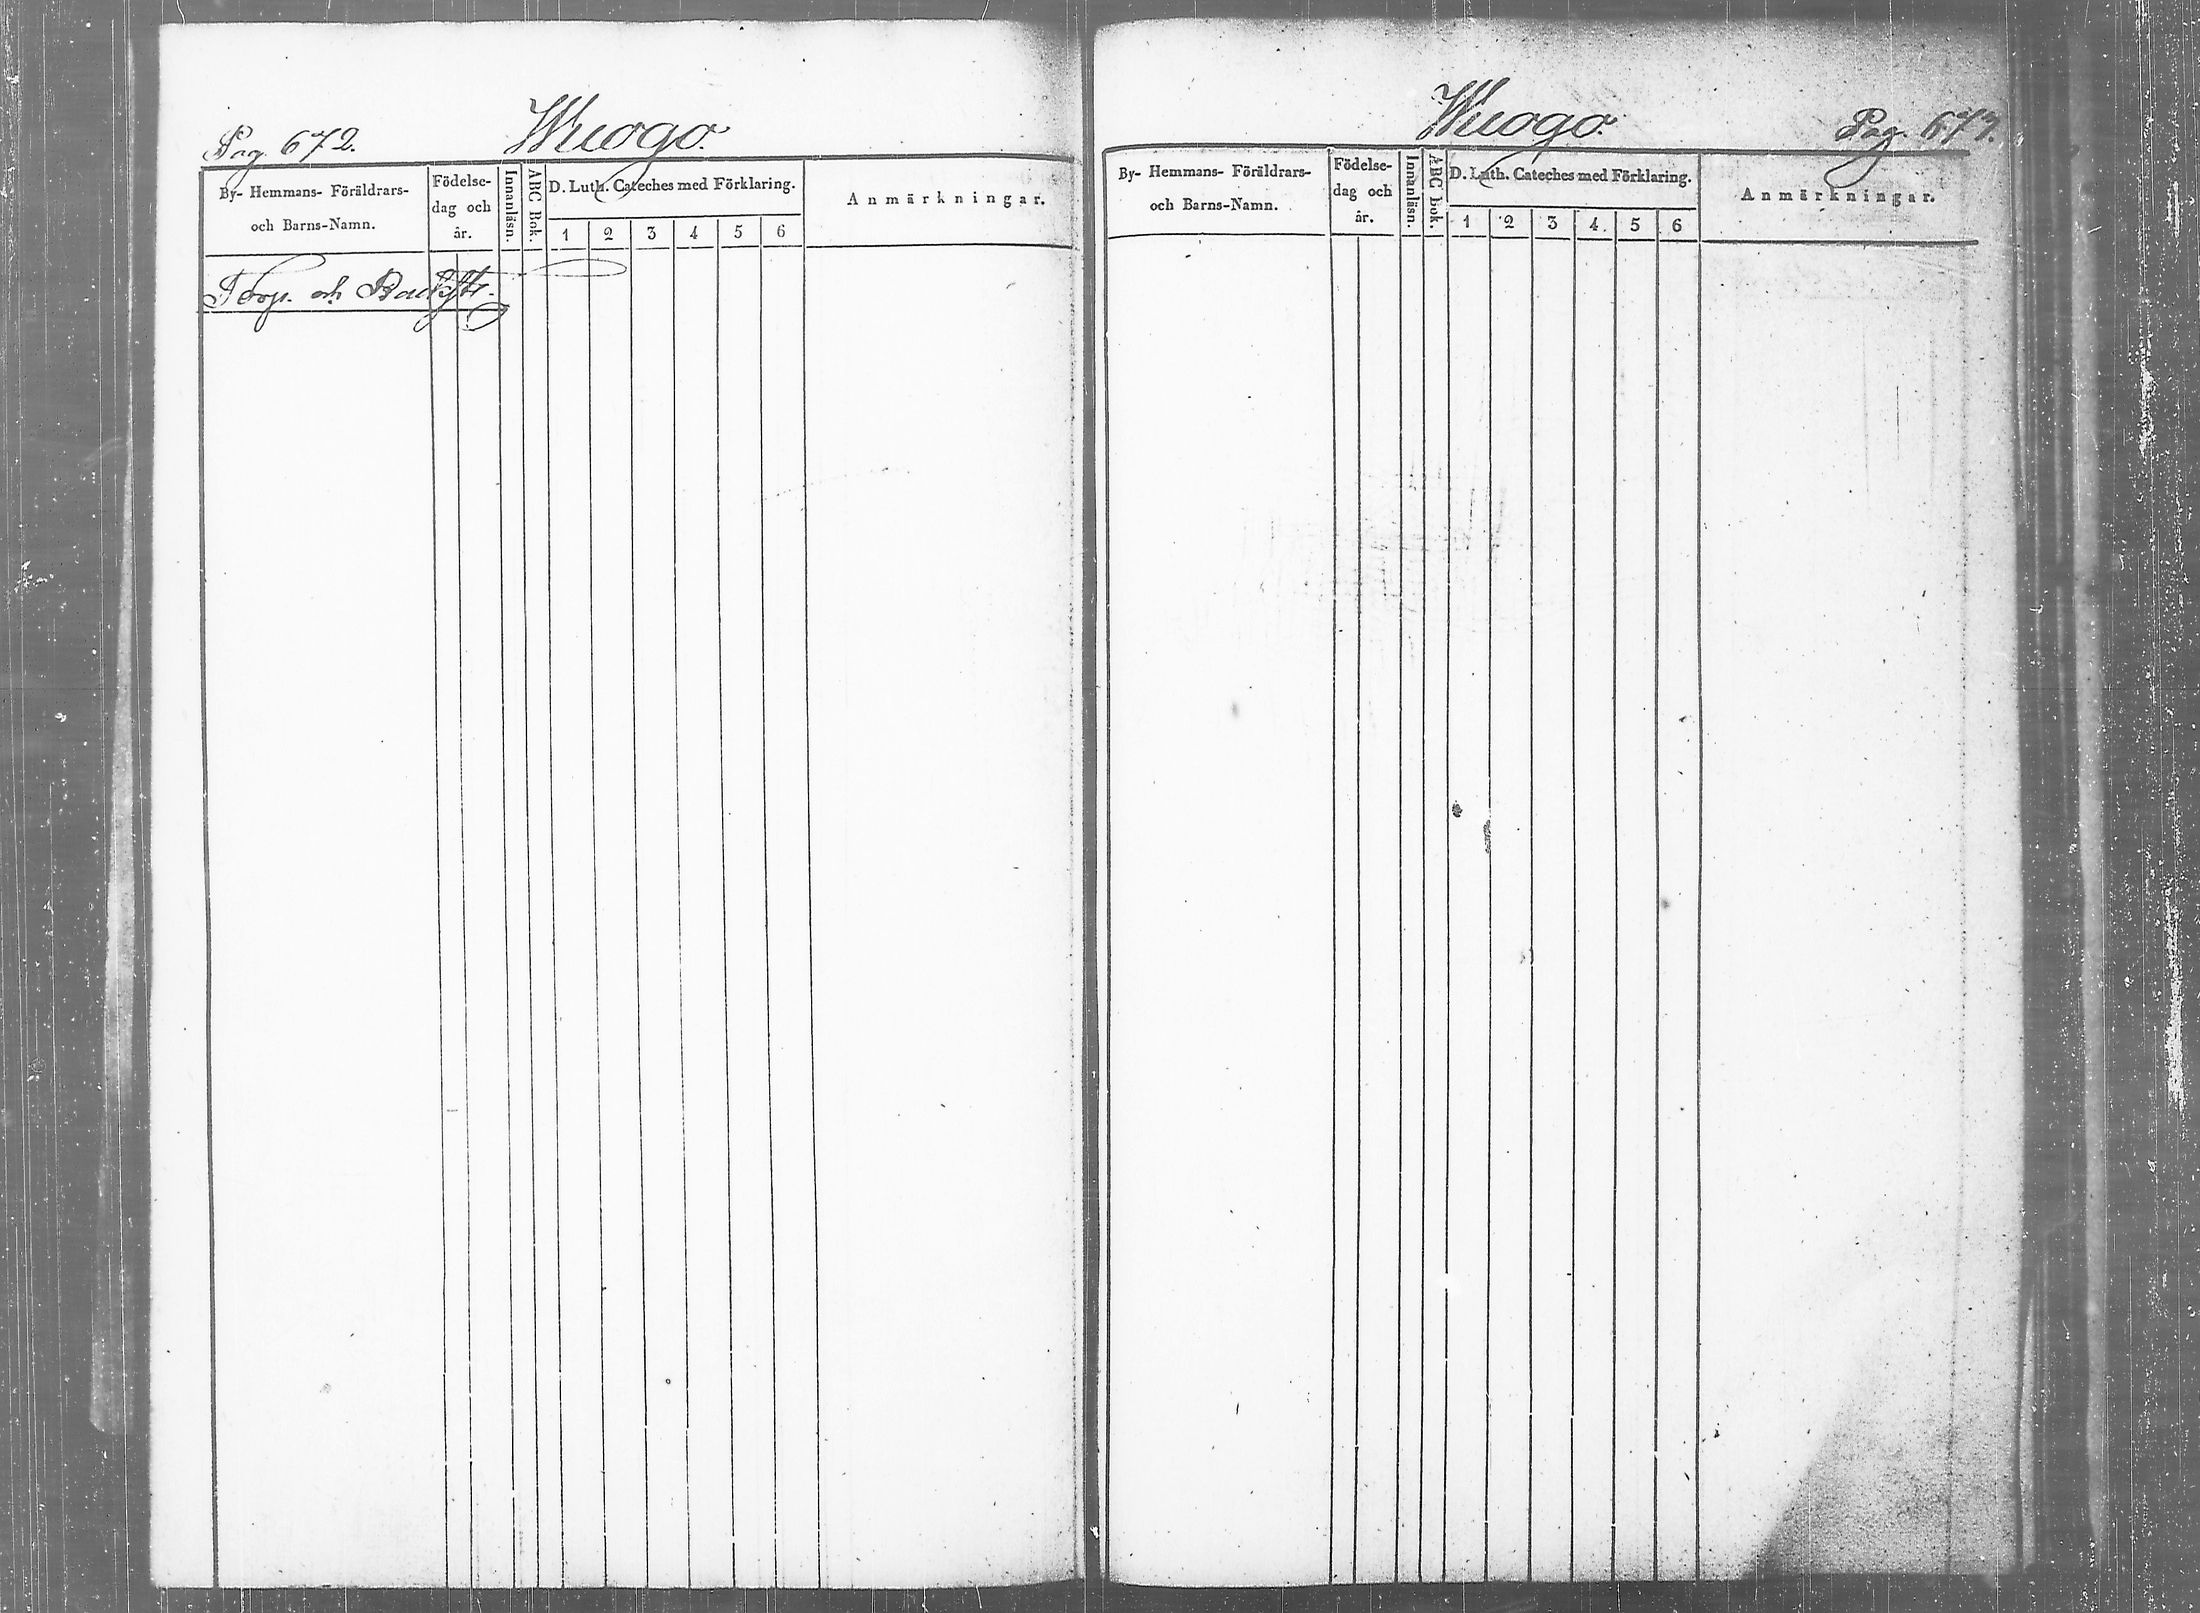 Pag. 672.
Wuogo.
By- Hemmans- Föräldrars-
och Barns-Namn.
Födelse-
dag och
år.
Innanläsn.
ABC Bok.
D. Luth. Cateches med Förklaring.
1 2 3 4 5 6
Anmärkningar.
Torp. och
Wuogo.
Pag.
By- Hemmans- Föräldrars-
och Barns-Namn.
Födelse-
dag och
år.
Innanläsn.
ABC bok.
D. Luth. Cateches med Förklaring.
1 2 3 4 5 6
Anmärkningar.